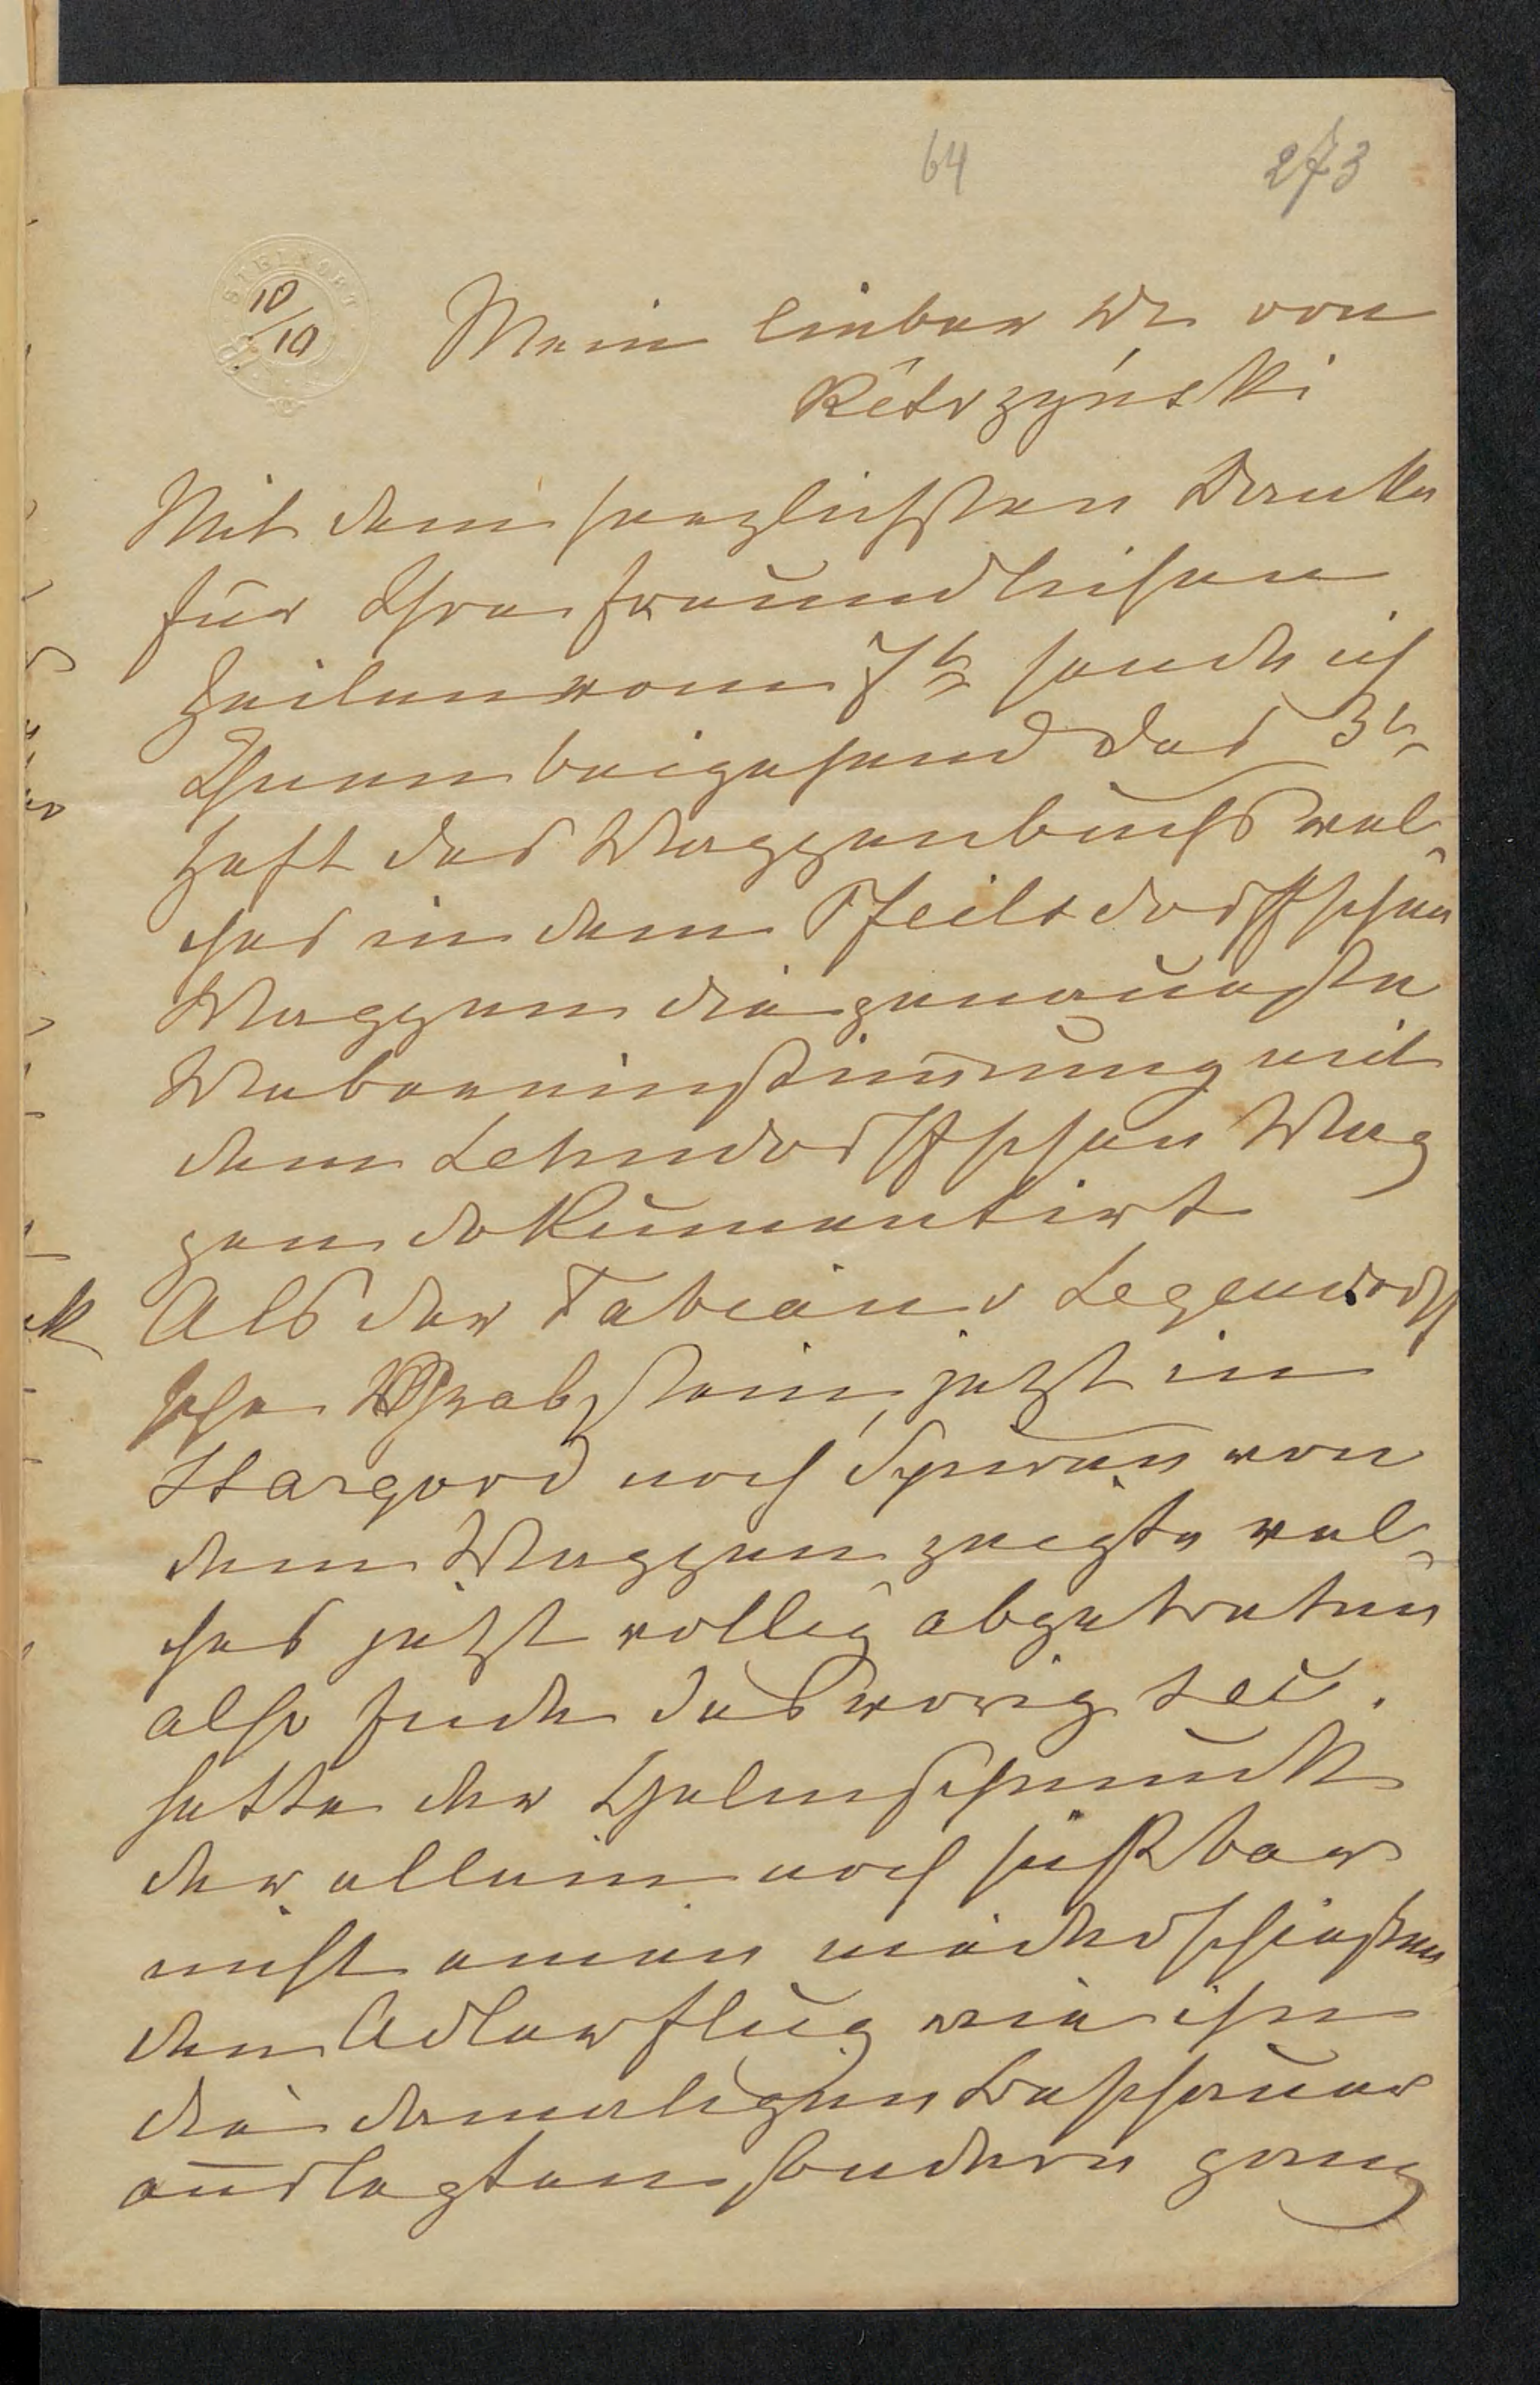 64 273
STEINORT
10/10
Mein lieber Dr von
Kêtrzyński
Mit dem herzlichsten Danke
für Ihre freundlichen
Zeilen vom 7t sende ich
Ihnen beigehend das 3te
Heft des Wappenbuchs wel-
ches in dem Pfeilsdorffschen
Wappen die genaueste
Uebereinstimmung mit
dem Lehndorffschen Wap
pen dokumentirt
Als der Fabian v Legendorff
sche Grabstein, jetzt in
Stargord noch Spuren von
dem Wappen zeigte wel-
ches jetzt völlig abgetreten
also Ende des vorig. Sec.
hatte der Helmschmuck
der allein noch sichtbar
nicht einen
den Adlerflug wie ihn
die damaligen Beschauer
auslegten sondern ganz